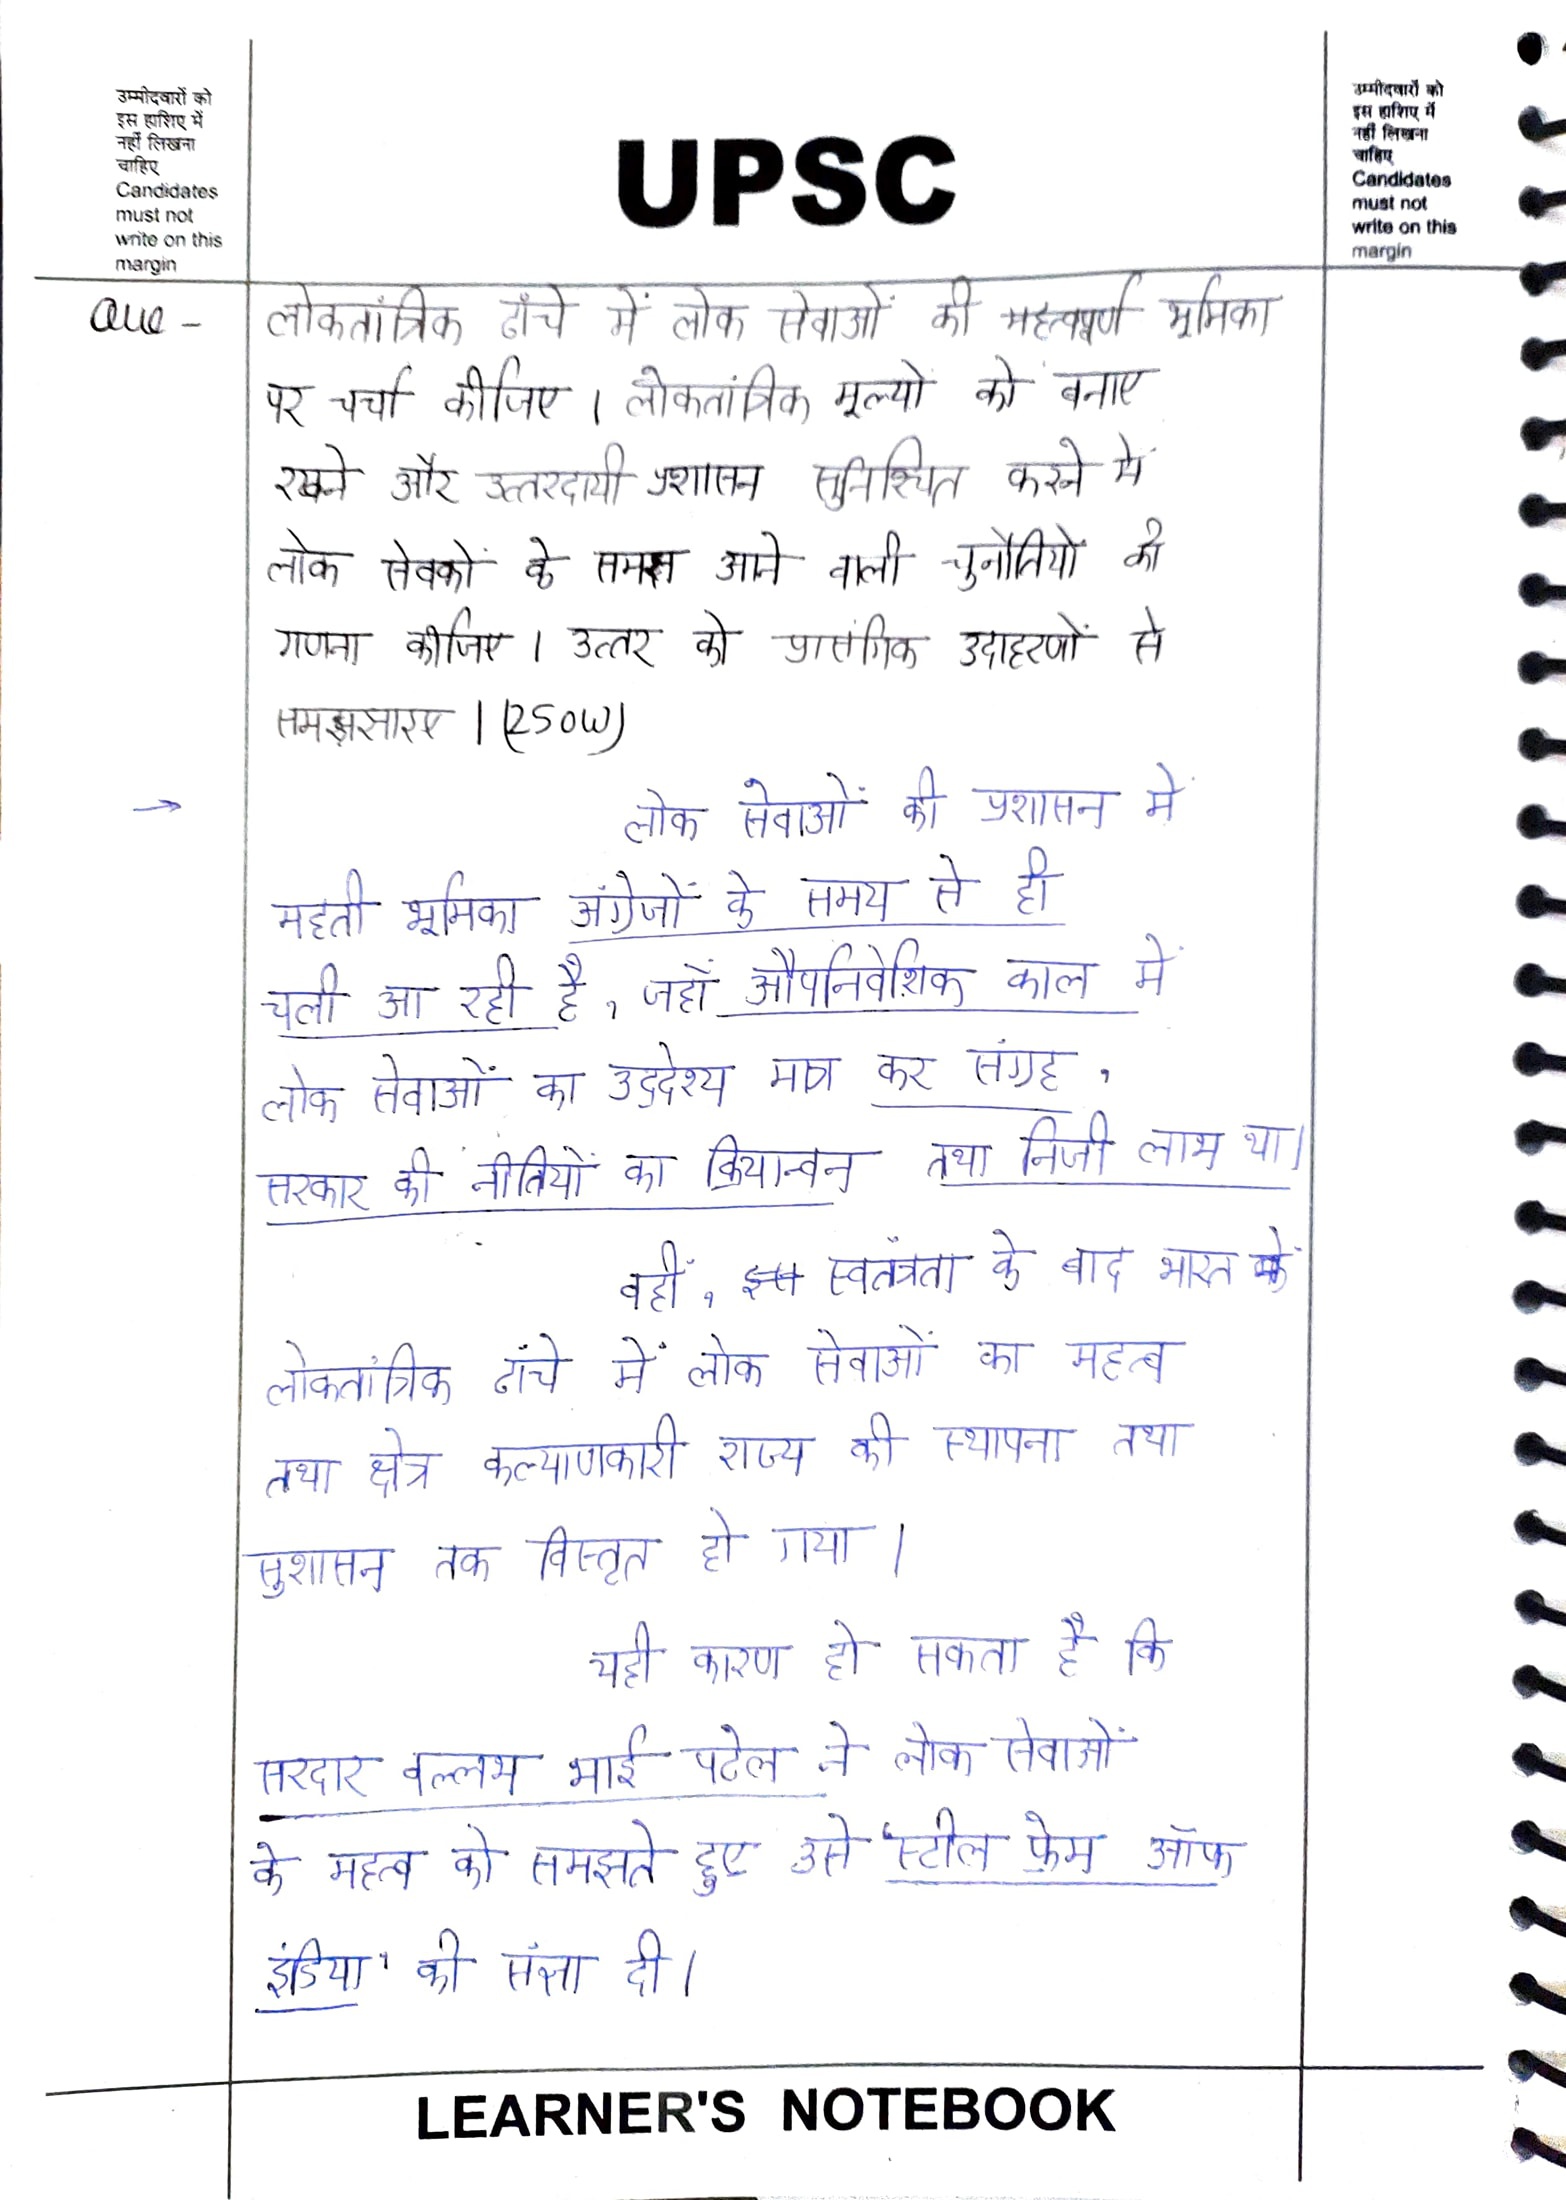 उम्मीदवारों को
इस हाशिए में
नहीं लिखना
चाहिए
Candidates
must not
write on this
margin
UPSC
उम्मीदवारों को
इस हाशिए में
नहीं लिखना
चाहिए
Candidates
must not
write on this
margin
Que - लोकतांत्रिक ढाँचे में लोक सेवाओं की महत्वपूर्ण भूमिका
पर चर्चा कीजिए । लोकतांत्रिक मूल्यों को बनाए
रखने और उत्तरदायी प्रशासन सुनिश्चित करने में
लोक सेवकों के समक्ष आने वाली चुनौतियों की
गणना कीजिए । उत्तर को प्रासंगिक उदाहरणों से
। (250W)
→ लोक सेवाओं की प्रशासन में
महती भूमिका अंग्रेजों के समय से ही
चली आ रही है, जहाँ औपनिवेशिक काल में
लोक सेवाओं का उद्देश्य मात्र कर संग्रह,
सरकार की नीतियों का क्रियान्वन तथा निजी लाभ था।
वहीं, स्वतंत्रता के बाद भारत के
लोकतांत्रिक ढाँचे में लोक सेवाओं का महत्व
तथा क्षेत्र कल्याणकारी राज्य की स्थापना तथा
सुशासन तक विस्तृत हो गया ।
यही कारण हो सकता है कि
सरदार वल्लभ भाई पटेल ने लोक सेवाओं
के महत्व को समझते हुए उसे 'स्टील फ्रेम ऑफ
इंडिया' की संज्ञा दी।
LEARNER'S NOTEBOOK